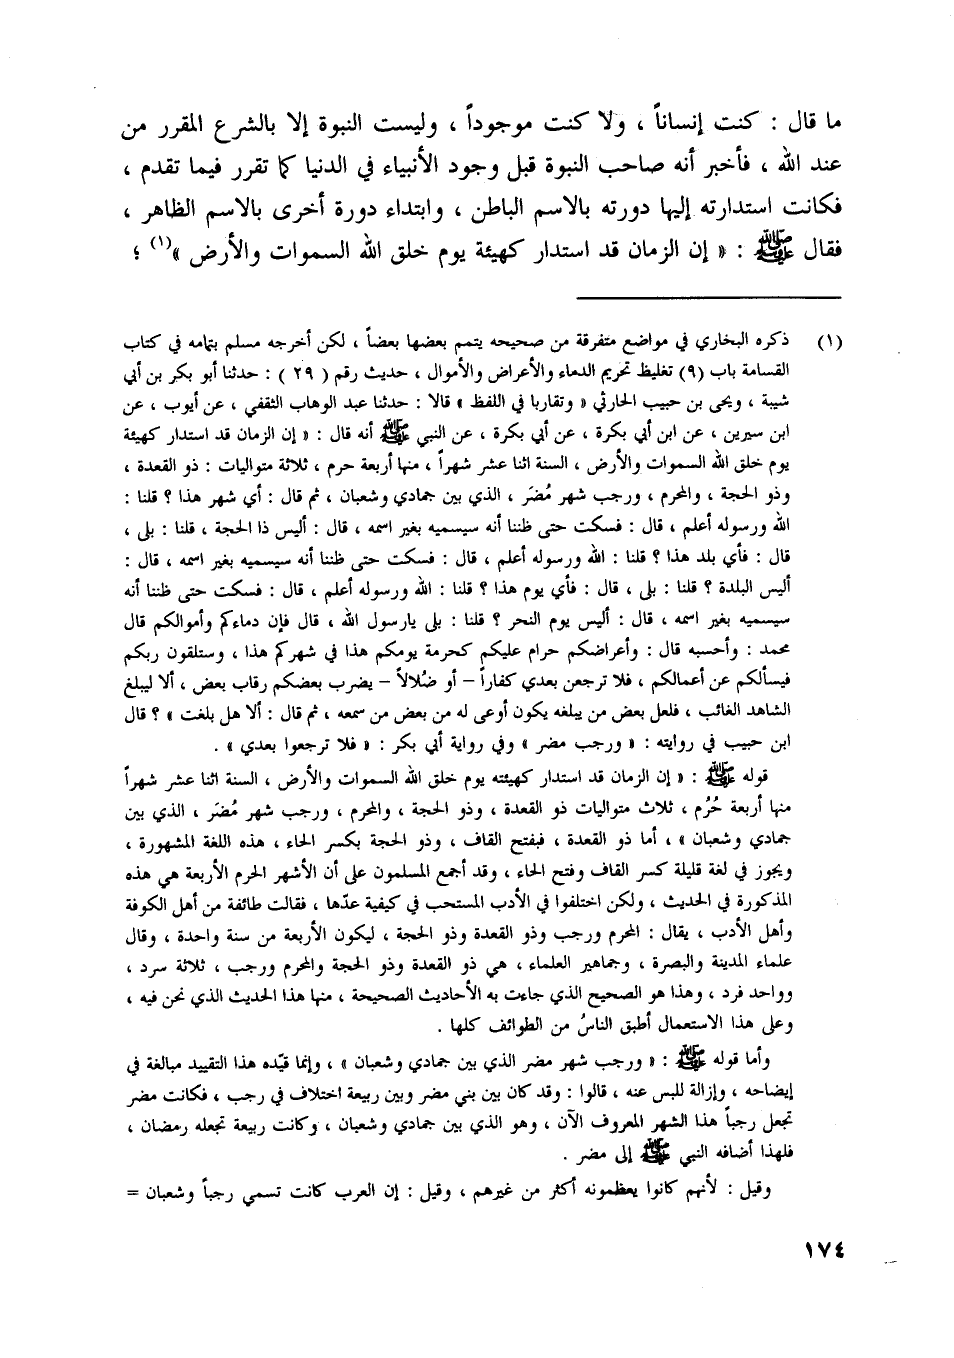 ما قال : كنت إنساناً ، ولا كنت موجوداً ، وليست النبوة إلا بالشرع المقرر من
عند الله ، فأخبر أنه صاحب النبوة قبل وجود الأنبياء في الدنيا كما تقرر فيما تقدم ،
فكانت استدارته إليها دورته بالاسم الباطن ، وابتداء دورة أخرى بالاسم الظاهر ،
فقال ﷺ : « إن الزمان قد استدار كهيئة يوم خلق الله السموات والأرض »(١) ؛
(١) ذكره البخاري في مواضع متفرقة من صحيحه يتمم بعضها بعضاً ، لكن أخرجه مسلم بتمامه في كتاب
القسامة باب (٩) تغليظ تحريم الدماء والأعراض والأموال ، حديث رقم ( ٢٩ ) : حدثنا أبو بكر بن أبي
شيبة ، ويحى بن حبيب الحارثي « وتقاربا في اللفظ » قالا : حدثنا عبد الوهاب الثقفي ، عن أيوب ، عن
ابن سيرين ، عن ابن أبي بكرة ، عن أبي بكرة ، عن النبي ﷺ أنه قال : « إن الزمان قد استدار كهيئة
يوم خلق الله السموات والأرض ، السنة اثنا عشر شهراً ، منها أربعة حرم ، ثلاثة متواليات : ذو القعدة ،
وذو الحجة ، والمحرم ، ورجب شهر مُضَر ، الذي بين جمادي وشعبان ، ثم قال : أي شهر هذا ؟ قلنا :
الله ورسوله أعلم ، قال : فسكت حتى ظننا أنه سيسميه بغير اسمه ، قال : أليس ذا الحجة ، قلنا : بلى ،
قال : فأي بلد هذا ؟ قلنا : الله ورسوله أعلم ، قال : فسكت حتى ظننا أنه سيسميه بغير اسمه ، قال :
أليس البلدة ؟ قلنا : بلى ، قال : فأي يوم هذا ؟ قلنا : الله ورسوله أعلم ، قال : فسكت حتى ظننا أنه
سيسميه بغير اسمه ، قال : أليس يوم النحر ؟ قلنا : بلى يارسول الله ، قال فإن دماءكم وأموالكم قال
محمد : وأحسبه قال : وأعراضكم حرام عليكم كحرمة يومكم هذا في شهركم هذا ، وستلقون ربكم
فيسألكم عن أعمالكم ، فلا ترجعن بعدي كفاراً – أو ضُلالاً – يضرب بعضكم رقاب بعض ، ألا ليبلغ
الشاهد الغائب ، فلعل بعض من يبلغه يكون أوعى له من بعض من سمعه ، ثم قال : ألا هل بلغت » ؟ قال
ابن حبيب في روايته : « ورجب مضر » وفي رواية أبي بكر : « فلا ترجعوا بعدي » .
قوله ﷺ : « إن الزمان قد استدار كهيئته يوم خلق الله السموات والأرض ، السنة اثنا عشر شهراً
منها أربعة حُرُم ، ثلاث متواليات ذو القعدة ، وذو الحجة ، والمحرم ، ورجب شهر مُضَر ، الذي بين
جمادي وشعبان » ، أما ذو القعدة ، فبفتح القاف ، وذو الحجة بكسر الحاء ، هذه اللغة المشهورة ،
ويجوز في لغة قليلة كسر القاف وفتح الحاء ، وقد أجمع المسلمون على أن الأشهر الحرم الأربعة هي هذه
المذكورة في الحديث ، ولكن اختلفوا في الأدب المستحب في كيفية عدّها ، فقالت طائفة من أهل الكوفة
وأهل الأدب ، يقال : المحرم ورجب وذو القعدة وذو الحجة ، ليكون الأربعة من سنة واحدة ، وقال
علماء المدينة والبصرة ، وجماهير العلماء ، هي ذو القعدة وذو الحجة والمحرم ورجب ، ثلاثة سرد ،
وواحد فرد ، وهذا هو الصحيح الذي جاءت به الأحاديث الصحيحة ، منها هذا الحديث الذي نحن فيه ،
وعلى هذا الاستعمال أطبق الناسُ من الطوائف كلها .
وأما قوله ﷺ : « ورجب شهر مضر الذي بين جمادي وشعبان » ، وإنما قيّده هذا التقييد مبالغة في
إيضاحه ، وإزالة للبس عنه ، قالوا : وقد كان بين بني مضر وبين ربيعة اختلاف في رجب ، فكانت مضر
تجعل رجباً هذا الشهر المعروف الآن ، وهو الذي بين جمادي وشعبان ، وكانت ربيعة تجعله رمضان ،
فلهذا أضافه النبي ﷺ إلى مضر .
وقيل : لأنهم كانوا يعظمونه أكثر من غيرهم ، وقيل : إن العرب كانت تسمي رجباً وشعبان =
١٧٤